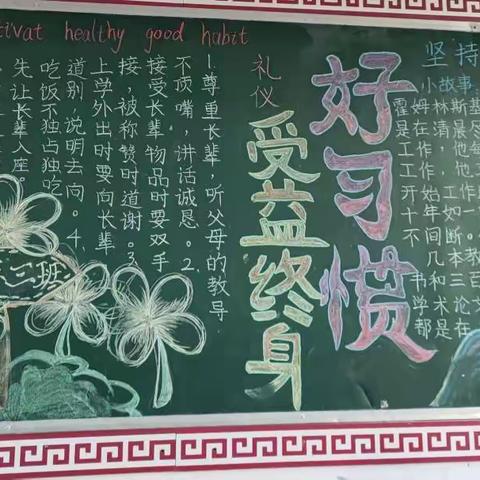 tivat healthy good habit
好习惯
受益终身
礼仪
1.尊重长辈，听父母的教导，
不顶嘴，讲话诚恳。2、
接受长辈物品时要双手
接，被称赞时道谢。3、
上学外出时要向长辈
道别，说明去向。4、
吃饭不独占独吃
先让长辈入座
三班
坚持
小故事：
霍姆林斯基
是在清晨尽
工作，他每
工作，他
开始工作
十年如一
不间断。
几本教
书和三百
学术论文
都是在